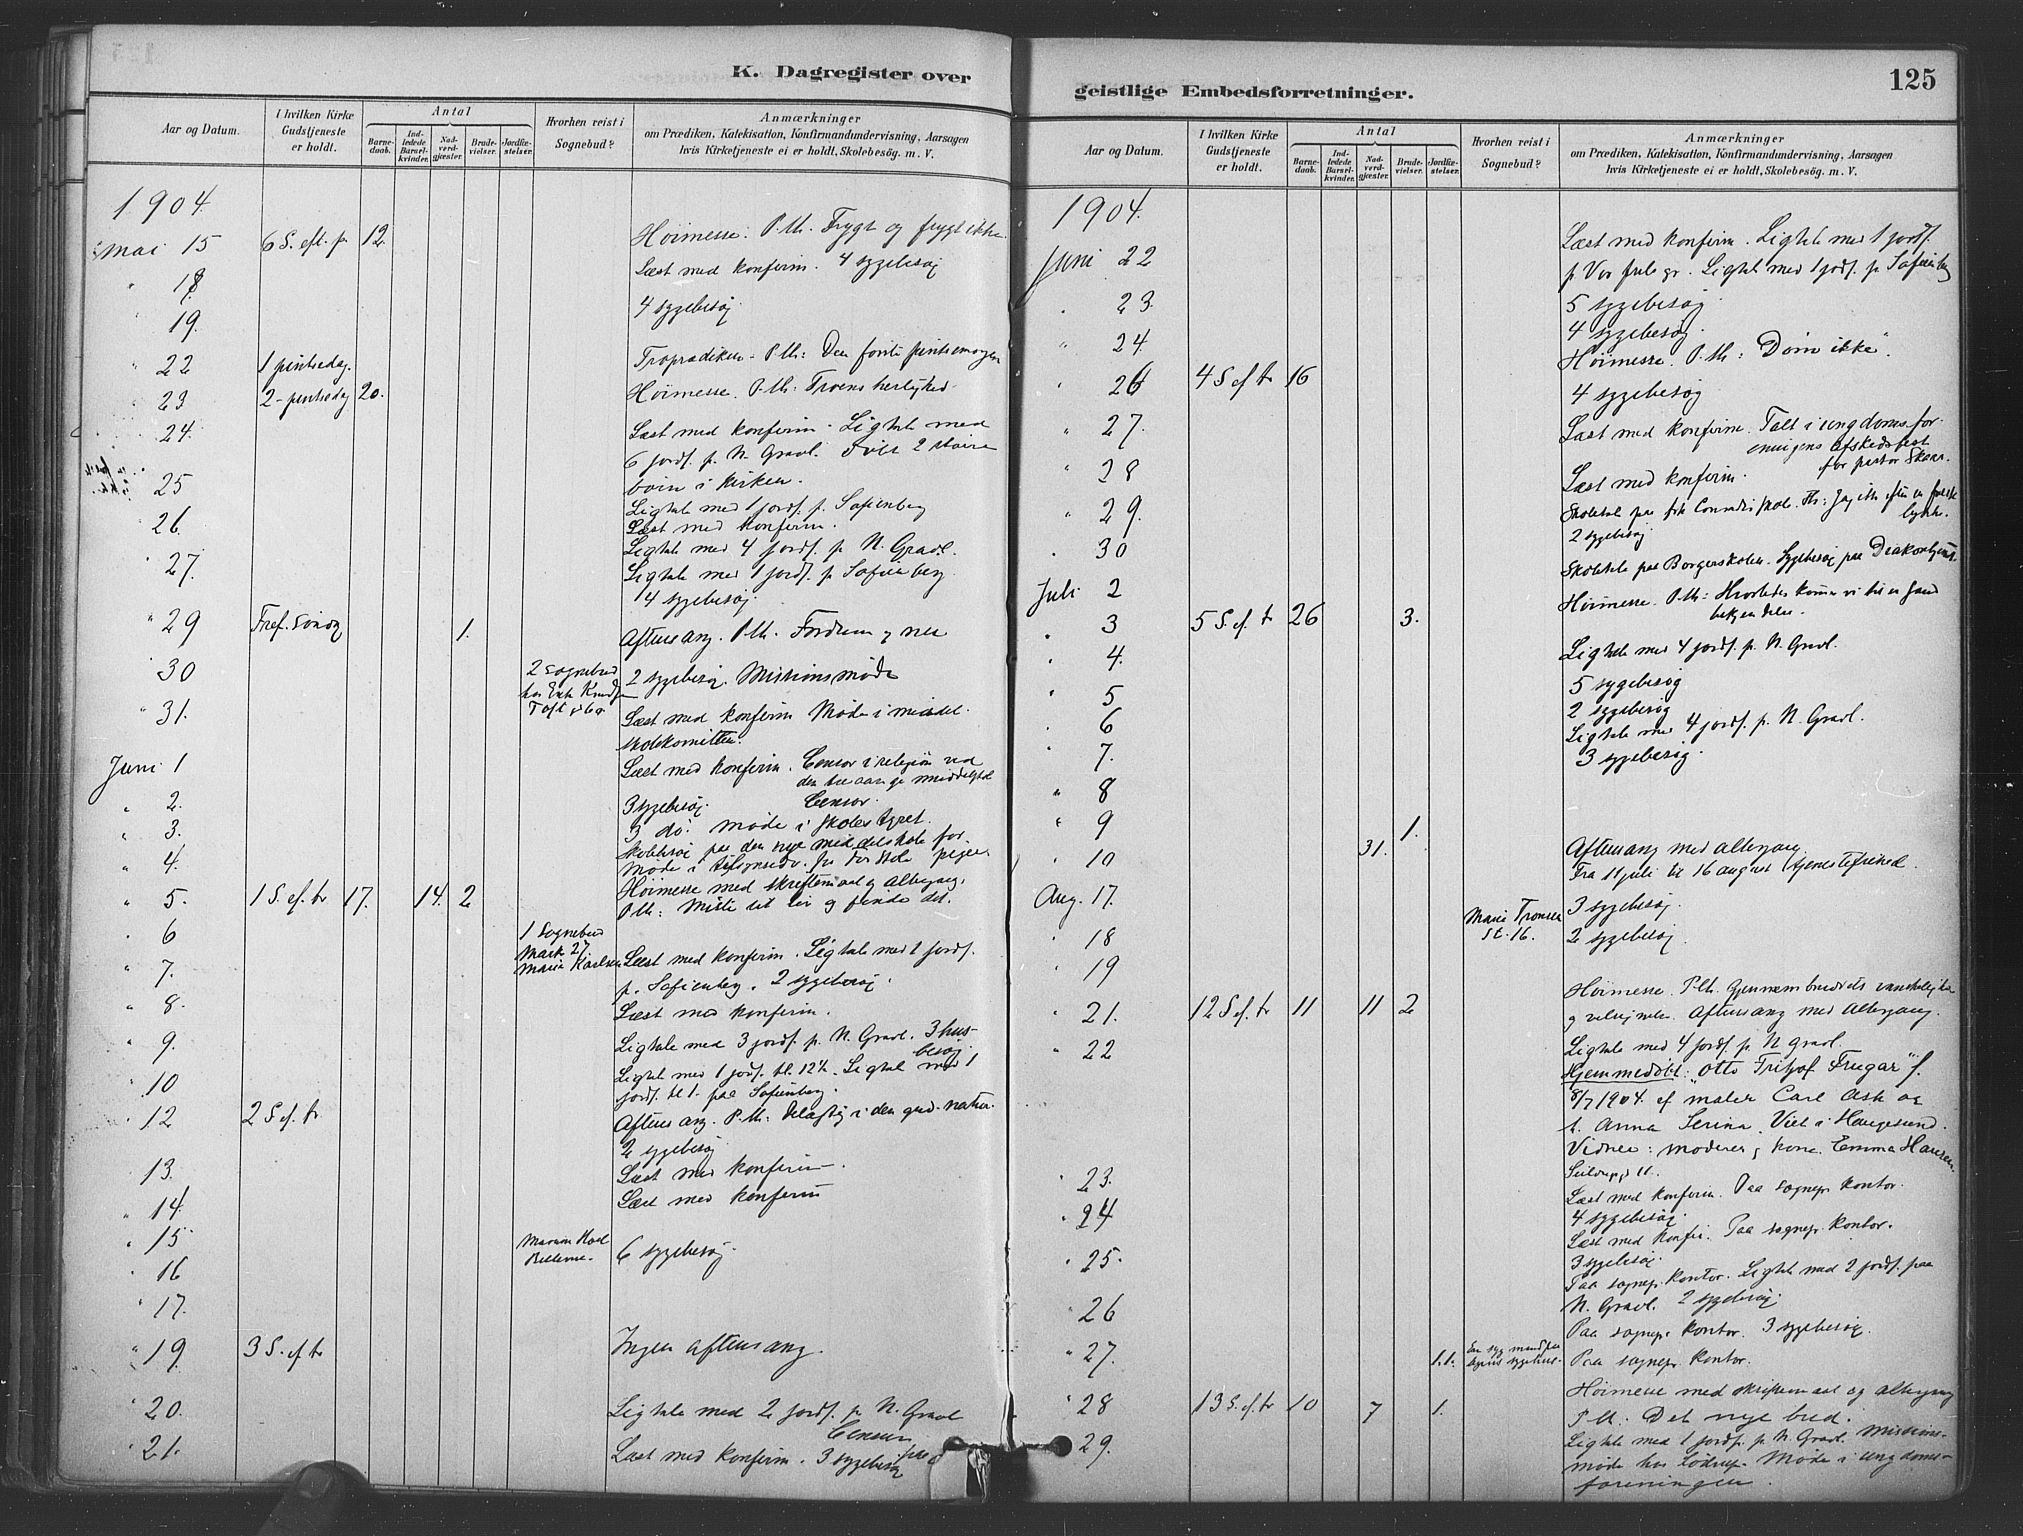 K. Dagregister over
Aar og Datum.
I hvilken Kirke Gudstjeneste er holdt.
Antal
Barnedaab.
Indledede Barselkvinder.
Nadverdgjæster.
Brudevielser.
Jordfæstelser.
Hvorhen reist i Sognebud?
Anmærkninger
om Prædiken, Katekisation, Konfirmandundervisning, Aarsagen
hvis Kirketjeneste ei er holdt, Skolebesög. m. V.
1904.
Mai 15 6 S. eft. p. 12 Høimesse. P. th. Frygt og frygt ikke.
" 18 Læst med konfirm. 4 sygebesøg
" 19. 4 sygebesøg
" 22 1 pintsedag.
" 23 2 - pintsedag 20. Høimesse. P. th: Troens herlighed.
" 24. Læst med konfirm. Ligtale med
6 jordf. p. N. Gravl.
børn i kirken.
" 25 Ligtale med 1 jordf. p. Sofienberg
" 26. Læst med konfirm.
Ligtale med 4 jordf. p. N. Gravl.
" 27. Ligtale med 1 jordf. p Sofienberg.
4 sygebesøg.
" 29 Tref. søndag 1. Aftensang. P. th.
" 30 2 sognebud 2 sygebesøg. Missionsmøde
" 31. Læst med konfirm Møde i
skolekomitten.
Juni 1 Læst med konfirm. Censor i religion ved
" 2. 3 sygebesøg. Censor.
" 3. 3 do. Møde i skolestyret.
" 4. Skolebesøg paa den nye middelskole for
" 5. 1 S. ef. tr 17. 14. 2 Høimesse med skriftemaal og altergang.
P. th: Miste sit liv og finde det.
" 6 1 sognebud
Mark 27.
Marie Karlsen
" 7. Læst med konfirm. Ligtale med 1 jordf.
p. Sofienberg. 2 sygebesøg.
" 8. Læst med konfirm.
" 9. Ligtale med 3 jordf. p. N. Gravl. 3 husbesøg.
" 10 Ligtale med 1 jordf. kl. 12½. Ligtale med 1
jordf. kl 1. paa Sofienberg.
" 12 2 S ef. tr Aftensang. P. th: Delagtig i den gud. natur.
2 sygebesøg
" 13. Læst med konfirm.
" 14. Læst med konfirm
" 15 6 sygebesøg.
" 16
" 17.
" 19. 3 S. ef tr Ingen aftensang.
" 20. Ligtale med 2 jordf. p N. Gravl
Censur
" 21. Læst med konfirm. 3 sygebesøg
geistlige Embedsforretninger.
125
Aar og Datum.
I hvilken Kirke Gudstjeneste er holdt.
Antal
Barnedaab.
Indledede Barselkvinder.
Nadverdgjæster.
Brudevielser.
Jordfæstelser.
Hvorhen reist i Sognebud?
Anmærkninger
om Prædiken, Katekisation, Konfirmandundervisning, Aarsagen
hvis Kirketjeneste ei er holdt, Skolebesög. m. V.
1904.
Juni 22 Læst med konfirm. Ligtale med 1 jordf.
p Vor frels gr. Ligtale med 1 jordf. p Sofienberg
" 23. 5 sygebesøg
" 24. 4 sygebesøg.
" 26 4 S ef tr 16 Høimesse. P. th: "Døm ikke".
4 sygebesøg
" 27. Læst med konfirm. Talt i ungdomsforeningens afskedsfest
for pastor Skaar.
" 28 Læst med konfirm.
" 29. Skoletale paa frk Conradis skole.
2 sygebesøg
" 30 Skoletale paa Borgerskolen. Sygebesøg paa
Juli 2
" 3 5 S. ef. tr 26 3. Høimesse. P. th: Hvorledes kommer vi til en
bekjendelse.
" 4. Ligtale med 4 jordf. p. N. Gravl.
" 5 5 sygebesøg
" 6 2 sygebesøg
" 7. Ligtale med 4 jordf. p. N. Gravl.
" 8 3 sygebesøg.
" 9 1.
" 10 31. Aftensang med altergang.
Fra 11 juli til 16 august tjenestefrihed.
Aug. 17. 3 sygebesøg.
" 18 Marie Tronsen
St. 16. 2 sygebesøg.
" 19
" 21. 12 S ef. tr 11 11 2 Høimesse. P. th. Gjennembruddets vanskelighed
og velsignelse. Aftensang med Altergang.
" 22 Ligtale med 4 jordf. p. N gravl.
Hjemmedøbt: "Otto Fritjof Frugar" f.
8/7 1904. af maler Carl Ask og
h. Anna Serina. Viet i Haugesund.
Vidner: moderen og kone Emma Hansen.
" 23. Læst med konfirm. Paa sognepr. kontor.
" 24 4 sygebesøg.
Læst med konfir. Paa sognepr. kontor.
" 25. 3 sygebesøg.
Paa sognepr. kontor. Ligtale med 2 jordf. paa
N. Gravl. 2 sygebesøg.
" 26 Paa sognepr. kontor. 3 sygebesøg.
" 27. 1.1. Paa sognepr. kontor.
" 28 13 S. ef. tr 10 7 1. Høimesse med skriftemaal og altergang
P. th.: Det nye bud.
" 29. Ligtale med 1 jordf. p. N. Gravl. Missionsmøde hos Lødrup. Møde i ungdomsforeningen.